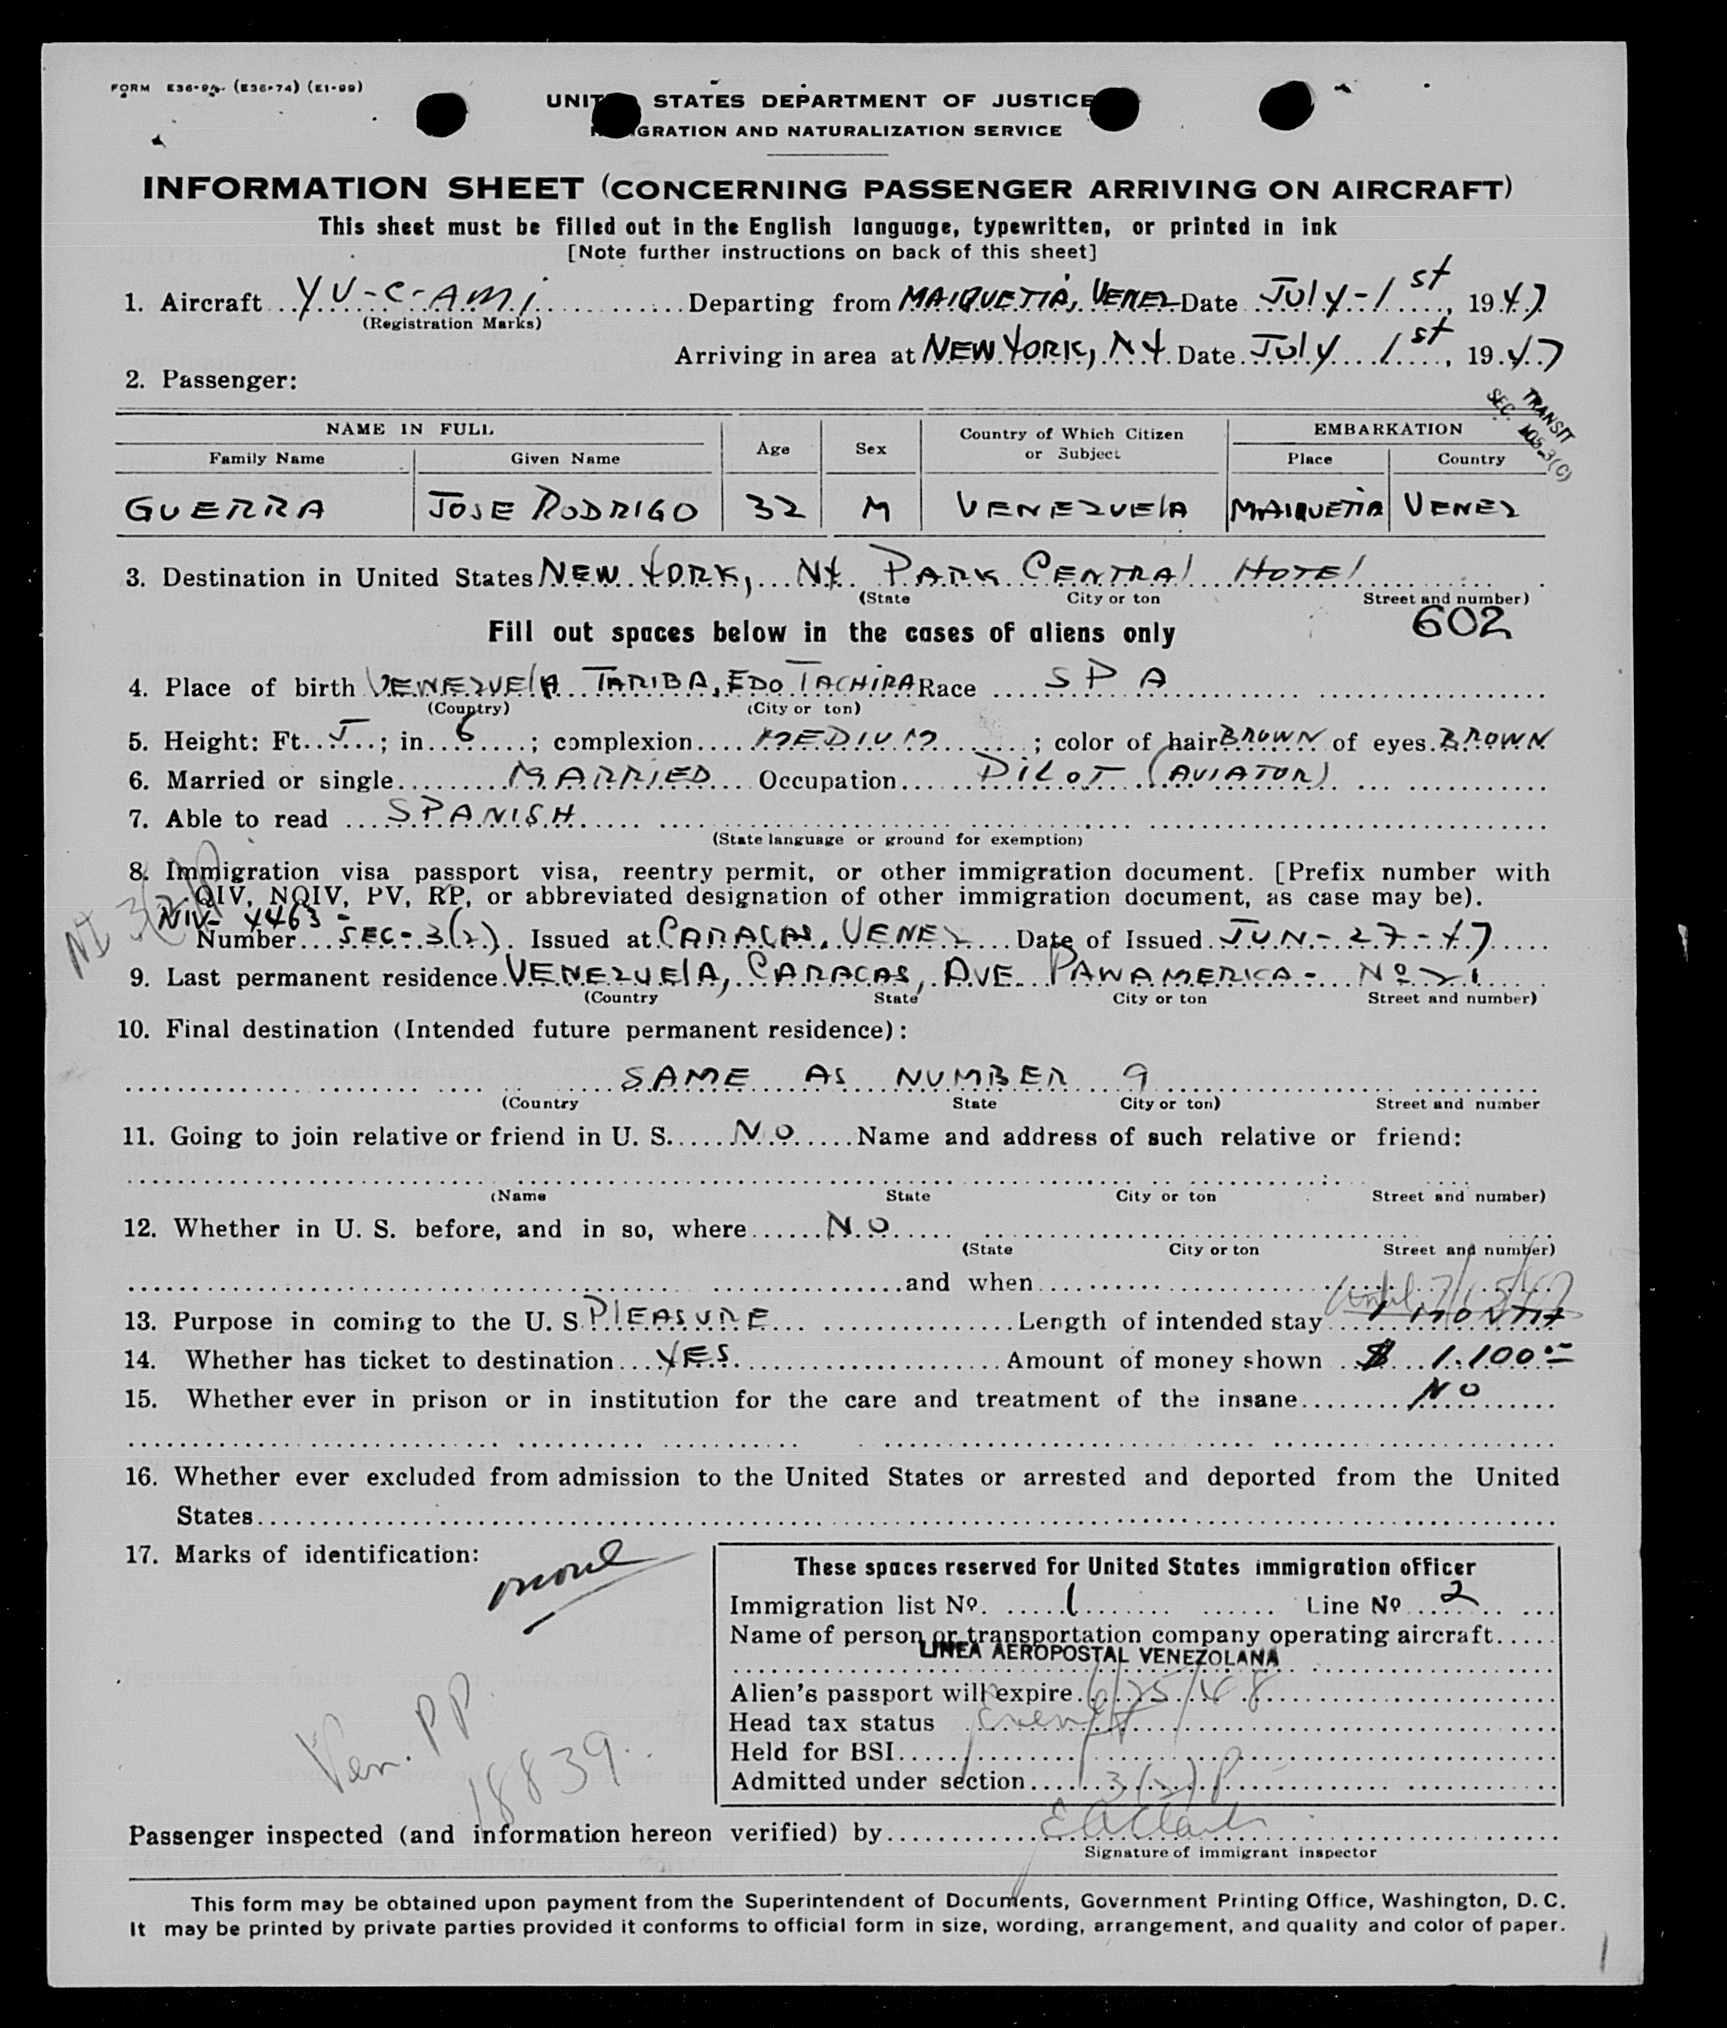 FORM E36-94 (E36-74) (E1-99)
UNITED STATES DEPARTMENT OF JUSTICE
IMMIGRATION AND NATURALIZATION SERVICE
INFORMATION SHEET (CONCERNING PASSENGER ARRIVING ON AIRCRAFT)
This sheet must be filled out in the English language, typewritten, or printed in ink
[Note further instructions on back of this sheet]
1. Aircraft YV-C-AMI Departing from MAIQUETIA, VENEZ Date July-1st, 1947
(Registration Marks)
Arriving in area at NEW YORK, NY. Date July 1st, 1947
2. Passenger:
TRANSIT
SEC. 105.3(C)
NAME IN FULL Age Sex Country of Which Citizen or Subject EMBARKATION
Family Name Given Name Place Country
GUERRA JOSE RODRIGO 32 M VENEZUElA MAIQUETIA VENEZ
3. Destination in United States NEW YORK, NY. PARK CENTRAl HOTEl
(State City or ton Street and number)
602
Fill out spaces below in the cases of aliens only
4. Place of birth VENEZUElA TARIBA, EDO TACHIRA Race SPA
(Country) (City or ton)
5. Height: Ft. 5; in. 6; complexion MEDIUM; color of hair BROWN of eyes BROWN
6. Married or single MARRIED Occupation PILOT (AVIATOR)
7. Able to read SPANISH
(State language or ground for exemption)
8. Immigration visa passport visa, reentry permit, or other immigration document. [Prefix number with
QIV, NQIV, PV, RP, or abbreviated designation of other immigration document, as case may be).
NIV- 4463-
Number SEC-3(2). Issued at CARACAS, VENEZ Date of Issued JUN-27-47
9. Last permanent residence VENEZUElA, CARACAS, AVE PANAMERICA- Nº 21
(Country State City or ton Street and number)
10. Final destination (Intended future permanent residence):
SAME AS NUMBER 9
(Country State City or ton) Street and number
11. Going to join relative or friend in U. S. NO Name and address of such relative or friend:
(Name State City or ton Street and number)
12. Whether in U. S. before, and in so, where NO
(State City or ton Street and number)
and when
until 7/15/47
13. Purpose in coming to the U. S PlEASURE Length of intended stay 1 MONTH
14. Whether has ticket to destination YES Amount of money shown $ 1.100.=
15. Whether ever in prison or in institution for the care and treatment of the insane NO
16. Whether ever excluded from admission to the United States or arrested and deported from the United
States
17. Marks of identification: none
These spaces reserved for United States immigration officer
Immigration list Nº. 1 Line Nº 2
Name of person or transportation company operating aircraft
LINEA AEROPOSTAL VENEZOLANA
Alien's passport will expire 6/25/48
Head tax status Exempt
Held for BSI
Admitted under section 3(2) P
Ven. PP
18839
Passenger inspected (and information hereon verified) by E A Clark
Signature of immigrant inspector
This form may be obtained upon payment from the Superintendent of Documents, Government Printing Office, Washington, D. C.
It may be printed by private parties provided it conforms to official form in size, wording, arrangement, and quality and color of paper.
1